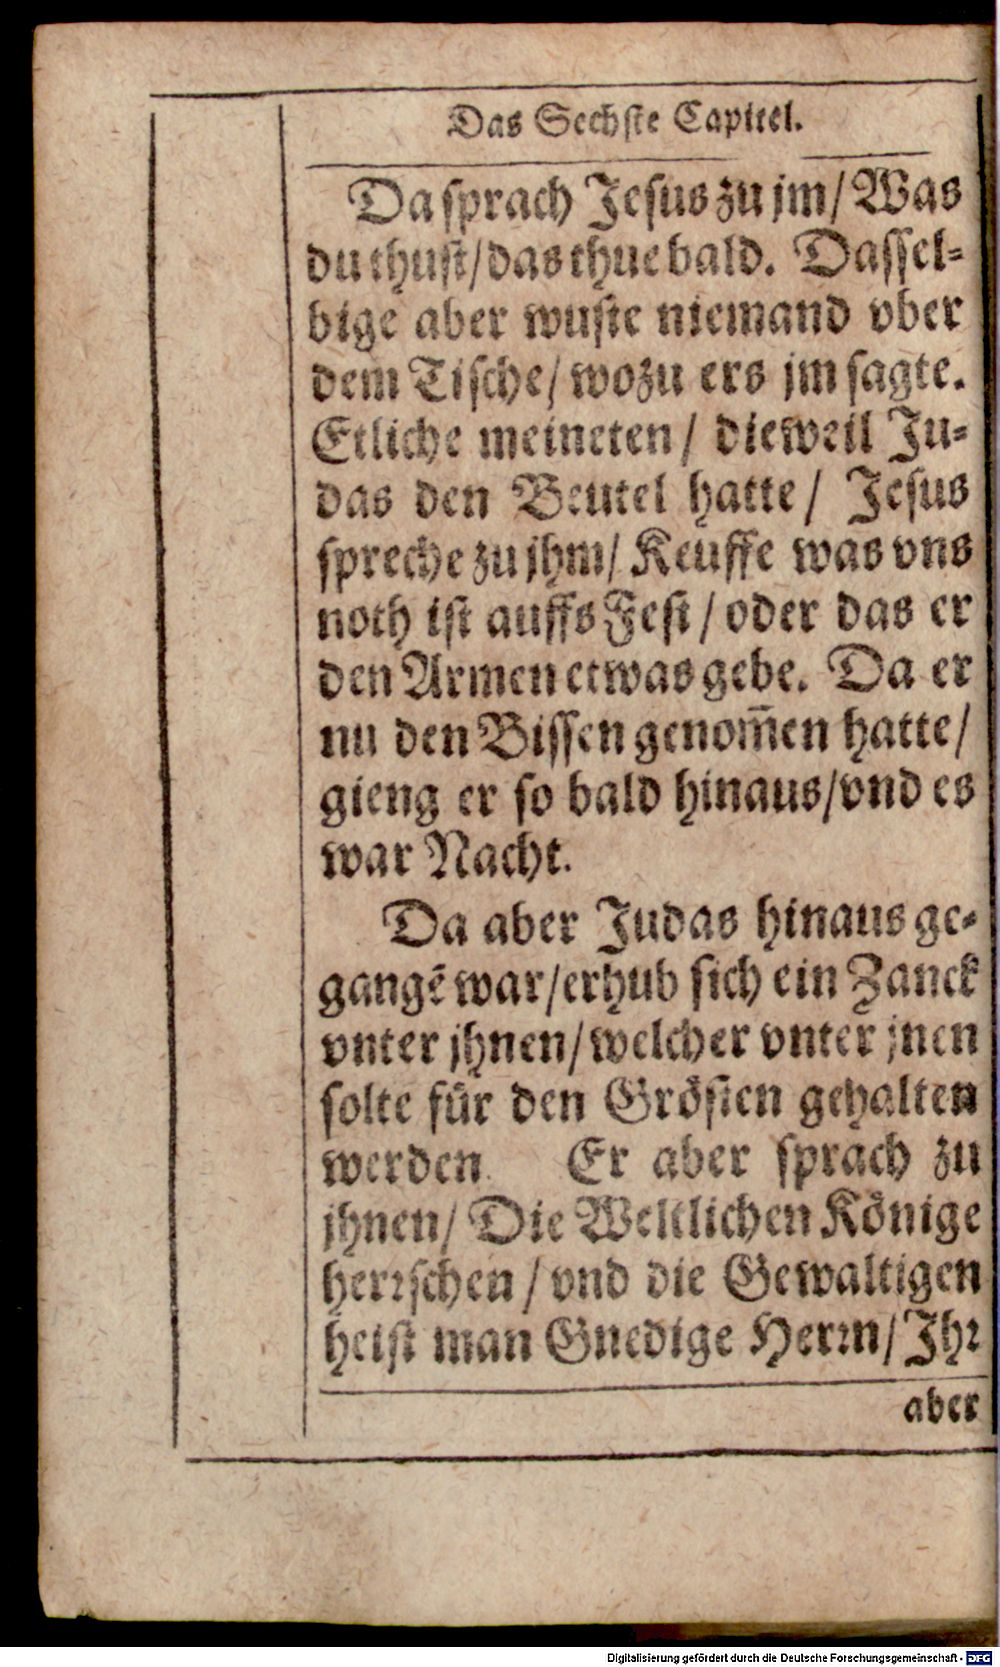 Das Sechste Capitel.
Da sprach Jesus zu jm/ Was
du thust/ das thue bald. Dassel-
bige aber wuste niemand vber
dem Tische/ wozu ers jm sagte.
Etliche meineten/ dieweil Ju-
das den Beutel hatte/ Jesus
spreche zu jhm/ Keuffe was vns
noth ist auffs Fest/ oder das er
den Armen etwas gebe. Da er
nu den Bissen genom̃en hatte/
gieng er so bald hinaus/ vnd es
war Nacht.
Da aber Judas hinaus ge-
gangẽ war/ erhub sich ein Zanck
vnter jhnen/ welcher vnter jnen
solte für den Grösten gehalten
werden. Er aber sprach zu
jhnen/ Die Weltlichen Könige
herrschen/ vnd die Gewaltigen
heist man Gnedige Herrn/ Jhr
aber
Digitalisierung gefördert durch die Deutsche Forschungsgemeinschaft - DFG